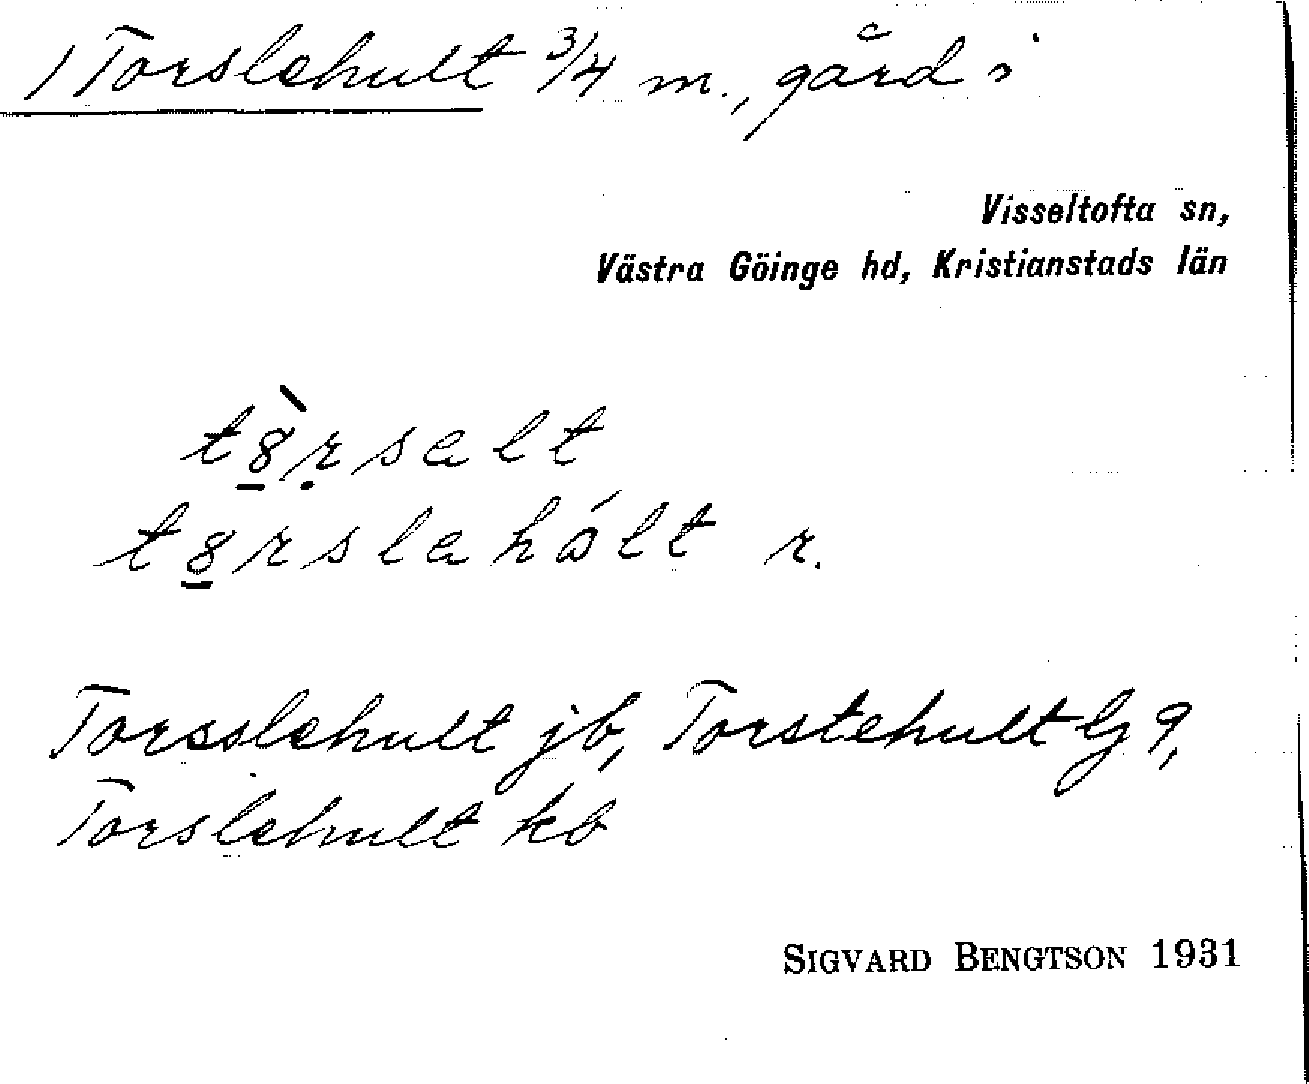 1 Torslehult 3/4 m., gård i
Visseltofta sn,
Västra Göinge hd, Kristianstads län
t8̱̀ṛsalt
t8̱rslahólt r.
Torsslehult jb, Torstehult lj 9,
Torslehult kb
SIGVARD BENGTSON 1931